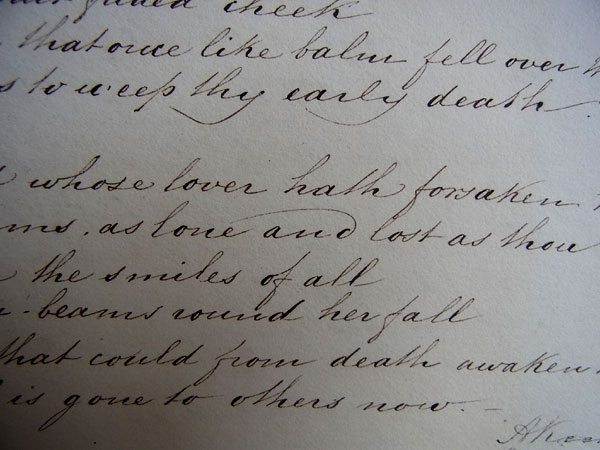 faded cheek
that once like balm fell over
to weep thy early death
whose lover hath forsaken
as lone and lost as thou
the smiles of all
beams round her fall
that could from death awaken
is gone to others now. -